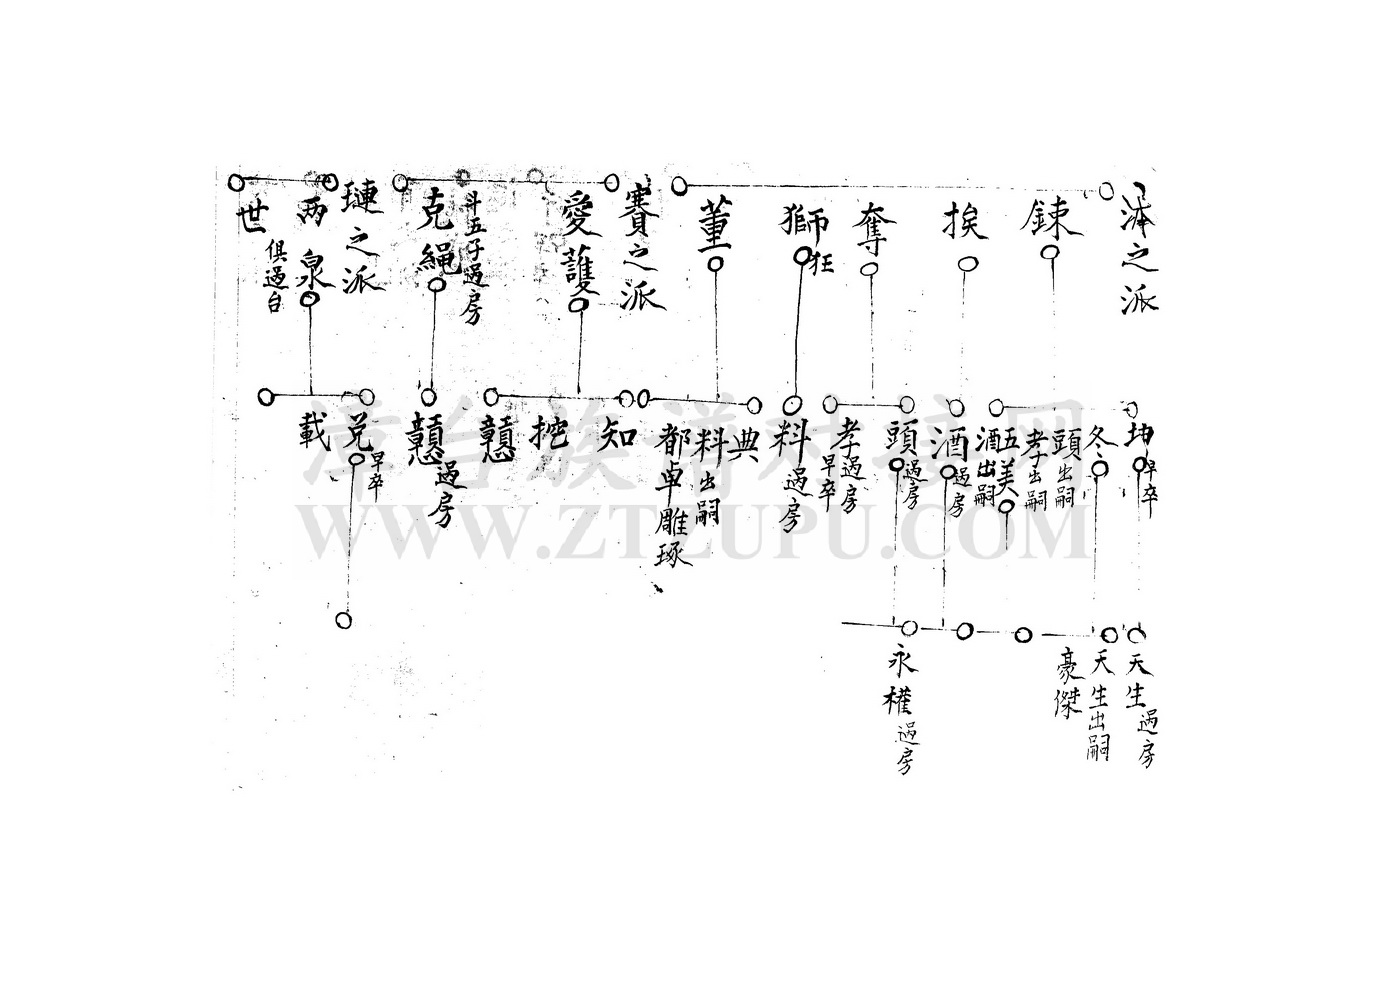 濤之派
鍊
挨
奪
獅狂
董
賽之派
愛護
斗五子過房
克繩
璉之派
兩泉
俱過台
世
坤早卒
冬
頭出嗣
孝出嗣
五美
酒出嗣
酒過房
頭過房
孝過房
早卒
料過房
典
料出嗣
都卓雕琢
知
挖
戇
戇過房
兌早卒
載
天生過房
天生出嗣
豪傑
永權過房
漳台族谱对接网
WWW.ZTZUPU.COM